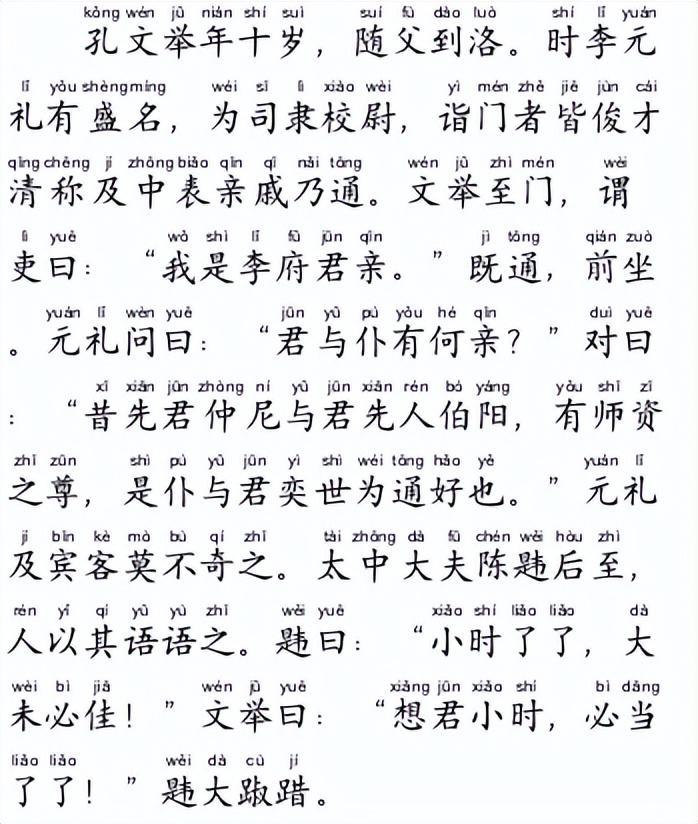 kǒng wén jǔ nián shí suì suí fù dào luò shí lǐ yuán
孔文举年十岁，随父到洛。时李元
lǐ yǒu shèng míng wéi sī lì xiào wèi yì mén zhě jiē jùn cái
礼有盛名，为司隶校尉，诣门者皆俊才
qīng chēng jí zhōng biǎo qīn qī nǎi tōng wén jǔ zhì mén wèi
清称及中表亲戚乃通。文举至门，谓
lì yuē wǒ shì lǐ fǔ jūn qīn jì tōng qián zuò
吏曰：“我是李府君亲。”既通，前坐
yuán lǐ wèn yuē jūn yǔ pú yǒu hé qīn duì yuē
。元礼问曰：“君与仆有何亲？”对曰
xī xiān jūn zhòng ní yǔ jūn xiān rén bó yáng yǒu shī zī
：“昔先君仲尼与君先人伯阳，有师资
zhī zūn shì pú yǔ jūn yì shì wéi tōng hǎo yě yuán lǐ
之尊，是仆与君奕世为通好也。”元礼
jí bīn kè mò bù qí zhī tài zhōng dà fū chén wěi hòu zhì
及宾客莫不奇之。太中大夫陈韪后至，
rén yǐ qí yǔ yù zhī wěi yuē xiǎo shí liǎo liǎo dà
人以其语语之。韪曰：“小时了了，大
wèi bì jiā wén jǔ yuē xiǎng jūn xiǎo shí bì dāng
未必佳！”文举曰：“想君小时，必当
liǎo liǎo wěi dà cù jí
了了！”韪大踧踖。